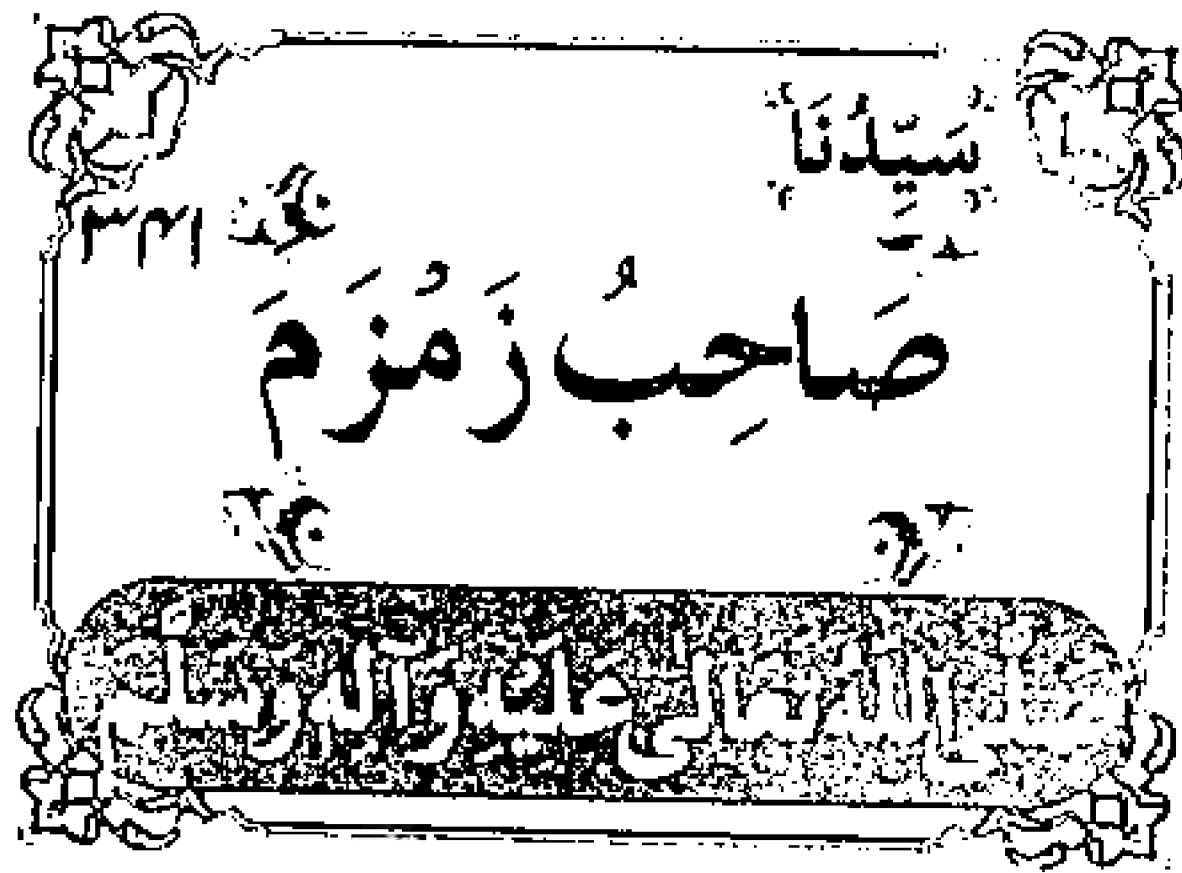 سَيِّدُنَا
۳۴۱
صَاحِبُ زَمْزَمَ
صلى الله تعالى عليه وآله وسلم